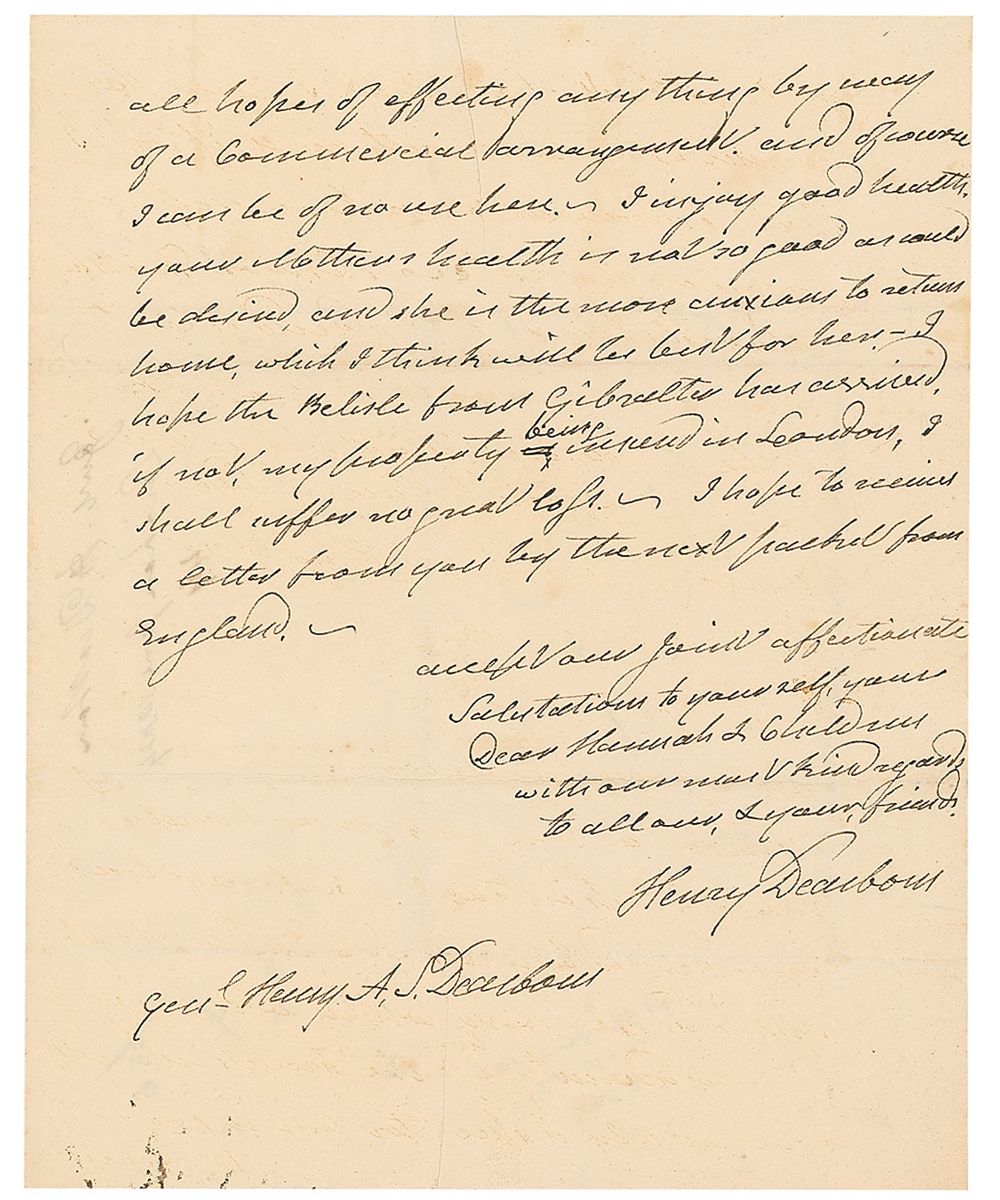 all hopes of effecting any thing by way
of a Commercial arrangement. and of course
I can be of no use here. ~ I injoy good health,
your Mothers health is not so good as could
be desired, and she is the more anxious to return
home, which I think will be best for her. – I
hope the Belisle from Gibralter has arrived,
if not, my property being insured in London, I
shall suffer no great loss. ~ I hope to receive
a letter from you by the next packet from
England. ~
accept our Joint affectionate
Salutations to yourself, your
Dear Hannah & Children
with our most kind regards
to all our, & your, friends.
Henry Dearborn
Genl Henry A. S. Dearborn